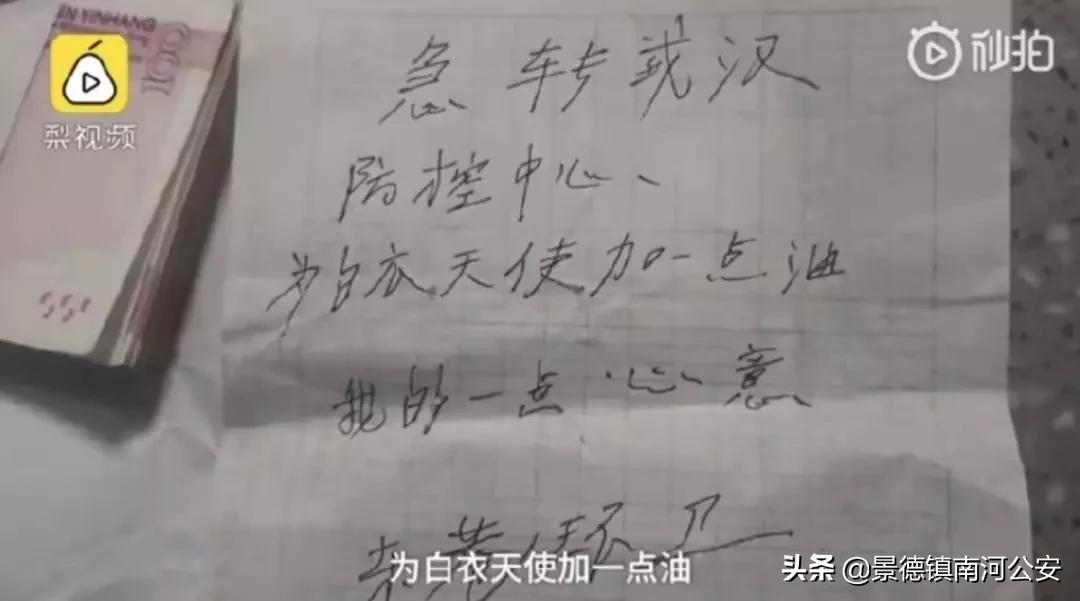 IN YINHANG
100
梨视频
秒拍
急转武汉
防控中心、
为白衣天使加一点油
我的一点心意
东港环卫
为白衣天使加一点油
头条 @景德镇南河公安